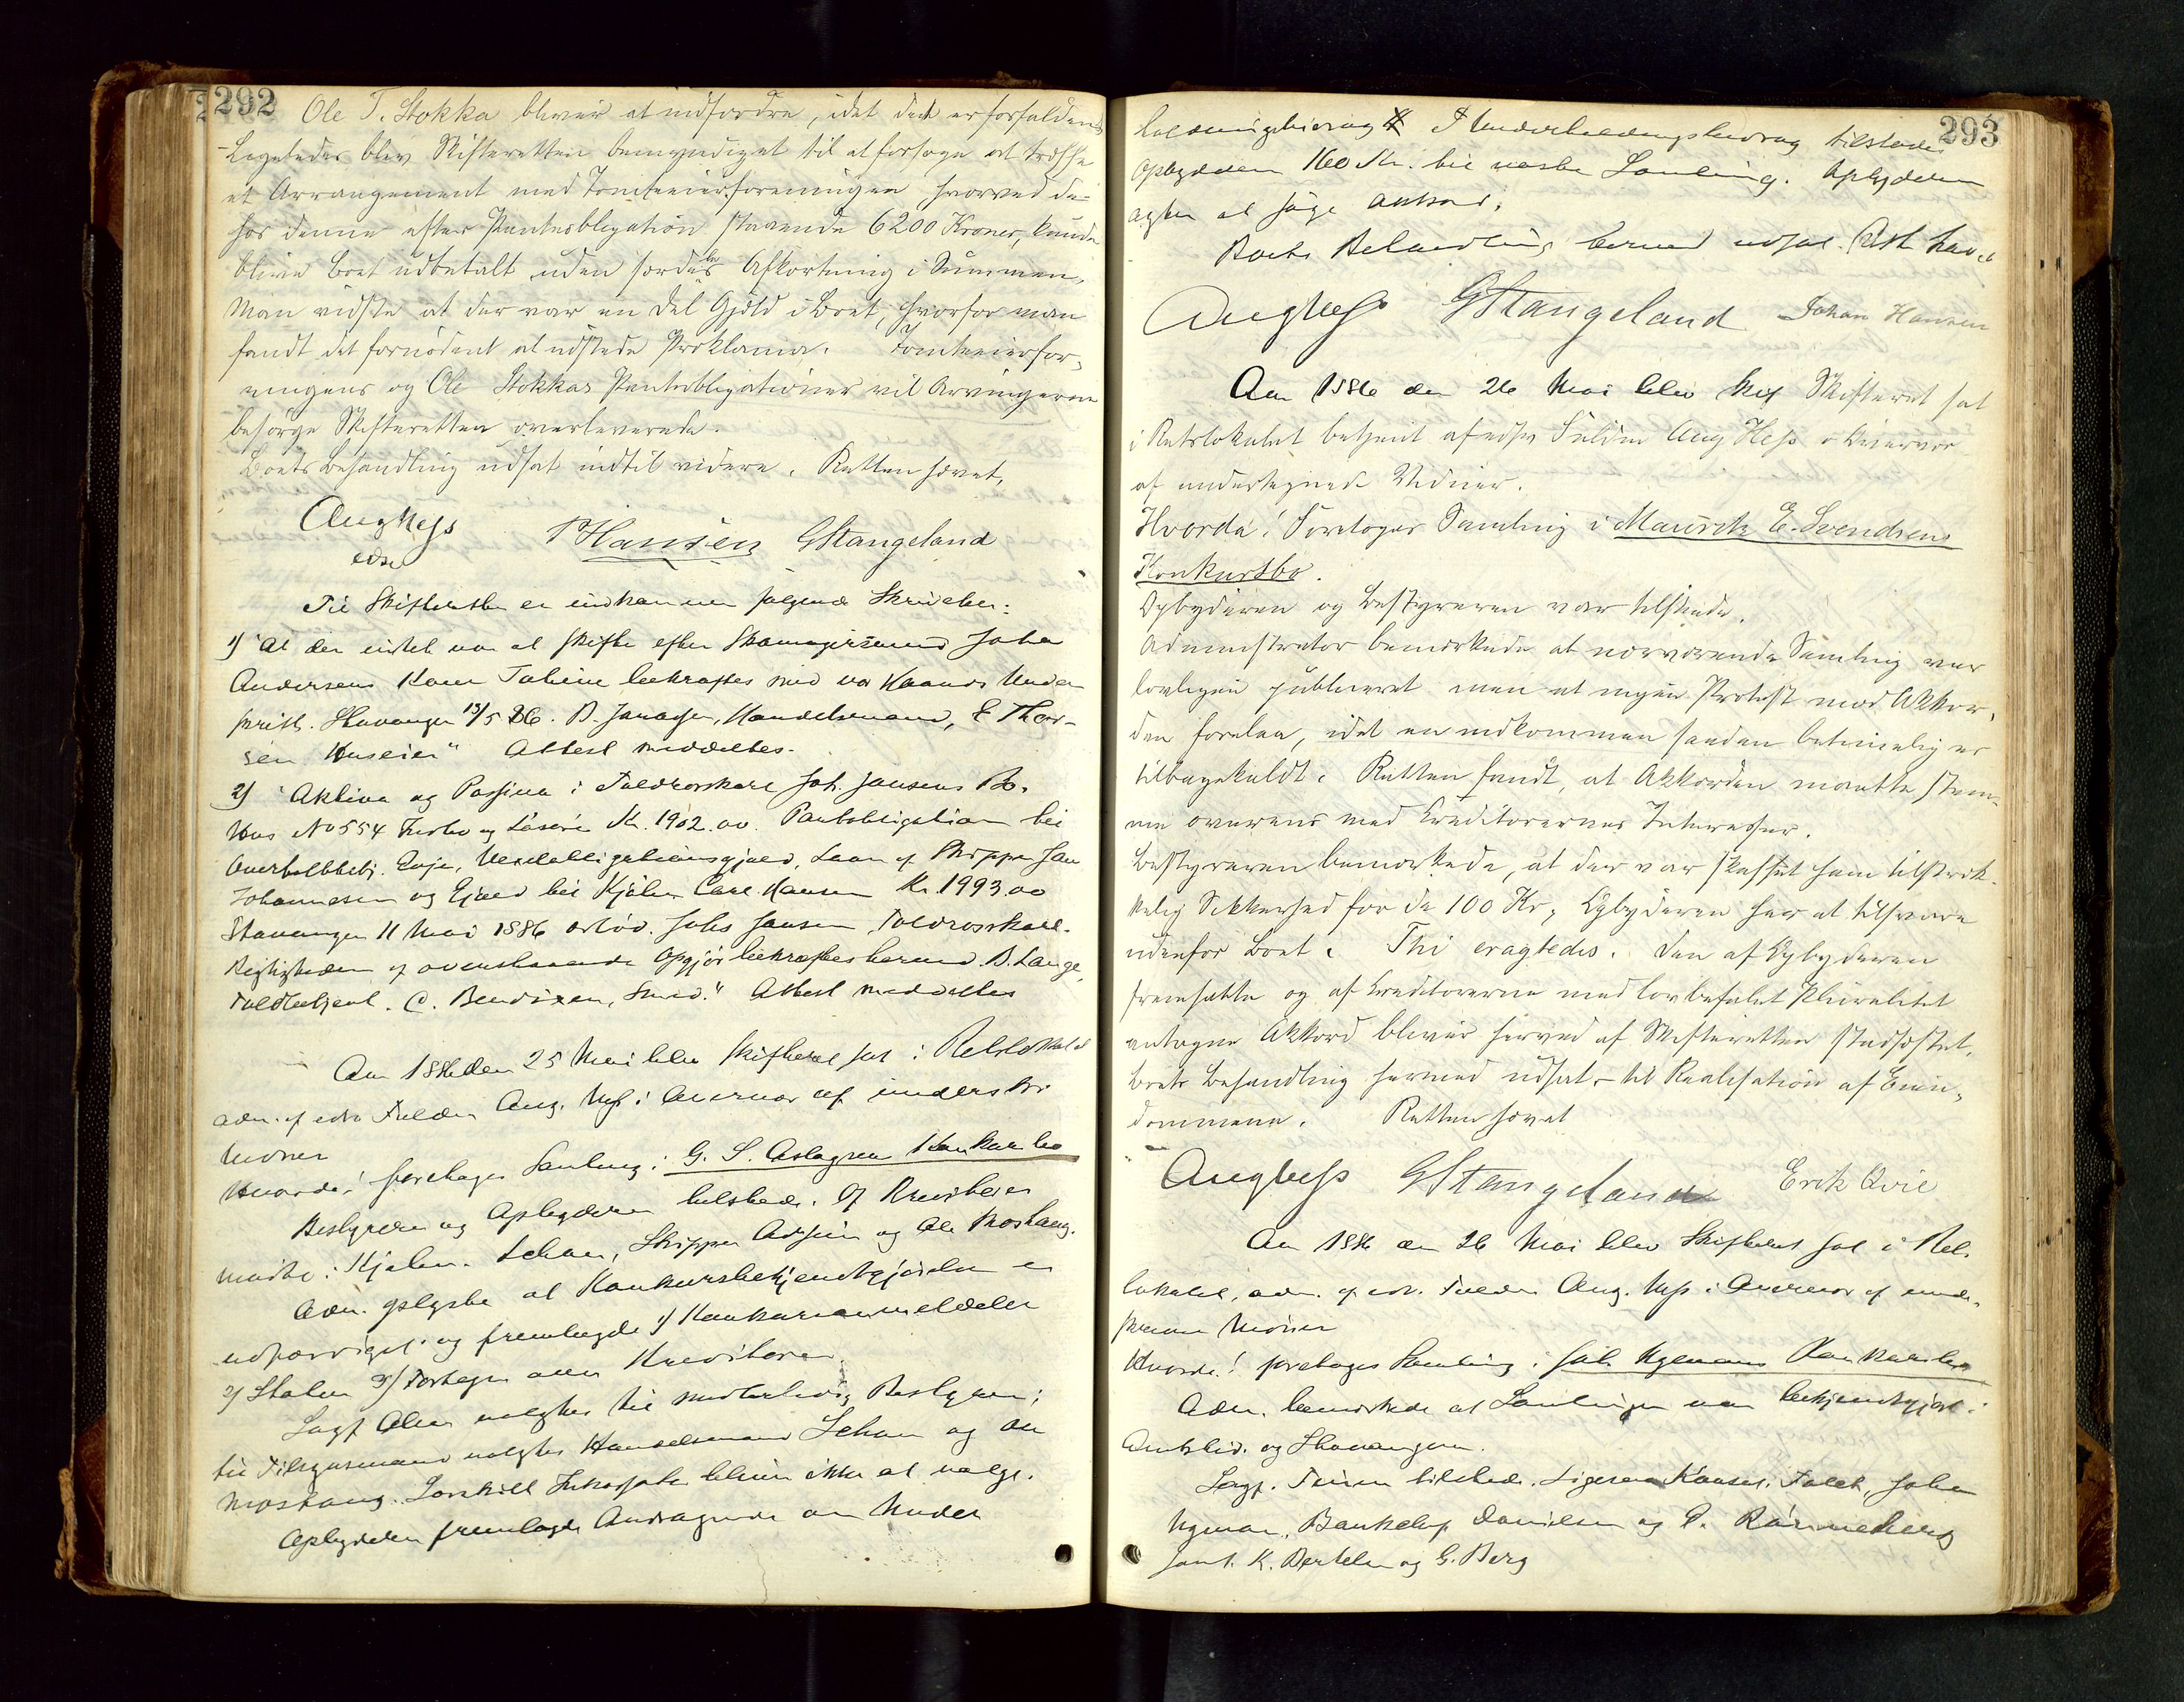 292
Ole T. Stokka bliver at indfordre, idet den er forfalden
Ligeledes blev Skifteretten bemyndiget til at forsøge at træffe
et Arrangement med Tomteeierforeningen hvorved de
hos denne efter Pantobligation staaende 6200 Kroner, kunde
blive Boet udbetalt uden Afkortning i Summen,
Man vidste at der var en Del Gjæld i Boet, hvorfor man
fandt det fornødent at udstede Proklama. Tomteeierfor-
eningens og Ole Stokkas Pantobligationer vil Arvingerne
besørge Skifteretten overleverede.
Boets Behandling udsat indtil videre. Retten hævet,
Aug Hess
edsv
P Hansen GStangeland
Til Skifteretten er indkommen følgende Skrivelser:
1) "At der intet var at skifte efter Skomagersvend John
Andersens Kone Tobine bekræftes med vor Haands Under
skrift. Stavanger 13/5 86. B. Jonassen, Handelsmand, E Thor-
sen Huseier" Attest meddeltes.
2) "Aktiva og Passiva i Toldroerskarl Joh. Jansens Bo.
Hus No 554 Indbo og Løsøre Kr. 1902.00. Pantobligation til
Overholdtbetj. Eeje, Vexelobligationsgjæld, Laan af Skipper Jan
Johannesen og Gjæld til Kjøbm Carl Hansen Kr. 1993.00
Stavanger 11 Mai 1886 Johs Jansen, Toldroerskarl.
Rigtigheden af ovenstaaende Opgjør bekræftes herved. B. Lange,
Toldbetjent. C. Bendixen, Smed." Attest meddeltes
Aar 1886 den 25 Mai blev Skifteret sat i Retslokalet
adm. af edsv Fuldm Aug. Hess i Overvær af underskr
Vidner
Hvorda! foretoges Samling i G. S. Aslagsen Konkursbo
Bestyreren og Opbyderen tilstede. Af Kreditorer
mødte: Kjøbm. Schou, Skipper og Ole Moshaug.
Adm. oplyste at Konkursbekjendtgjørelsen er
udfærdiget og fremlagde 1) Konkursanmeldelse
2) Status 3) Fortegn over Kreditorer.
Sagf Olsen valgtes til midlertidig Bestyrer;
til Tilsynsmænd valgtes Handelsmand Schou og Ole
Moshaug. Særskilt Inkassator bliver ikke at vælge.
Opbyderen fremlagde Andragende om Under
293
holdningsbidrag. I Underholdningsbidrag tilstodes
Opbyderen 160 Kr. til næste Samling. Opbyderen
agter at søge Akkord.
Boets Behandling hermed udsat. Ret hævet
Aug Hess GStangeland Johan Hansen
Aar 1886 den 26 Mai blev Skifteret sat
i Retslokalet betjent af edsv Fuldm Aug Hess i Overvær
af undertegnede Vidner.
Hvorda! Foretoges Samling i Mauritz E. Svendsens
Konkursbo.
Opbyderen og Bestyreren var tilstede.
Administrator bemærkede at nærværende Samling var
lovligen publiceret men at ingen Protest mod Akkor-
den forelaa, idet en indkommen saadan betimelig er
tilbagekaldt. Retten fandt, at Akkorden maatte stem-
me overens med Creditorernes Interesser.
Bestyreren bemærkede, at der var skaffet ham tilstræk-
kelig Sikkerhed for de 100 Kr, Opbyderen har at tilsvare
udenfor Boet. Thi eragtedes. Den af Opbyderen
fremsatte og af Creditorerne med lovbefalet Pluralitet
antagne Akkord bliver herved af Skifteretten stadfæstet.
Boets Behandling hermed udsat til Realisation af Eien-
dommene. Retten hævet
Aug Hess GStangeland Erik Qvie
Aar 1886 den 26 Mai blev Skifteret sat i Ret-
lokalet, adm. af edsv. Fuldm Aug. Hess i Overvær af under-
skrevne Vidner
Hvorda! foretoges Samling i Joh. Ugemans Konkursbo
Adm. bemærkede at Samlingen var bekjendtgjort i
Amtstid. og Stavangeren.
Sagf. tilstede. Ligesaa Konsul Falck, John
Ugman, Bankchef Danielsen og P. Rønneberg
samt K. Bertelsen og G. Berg